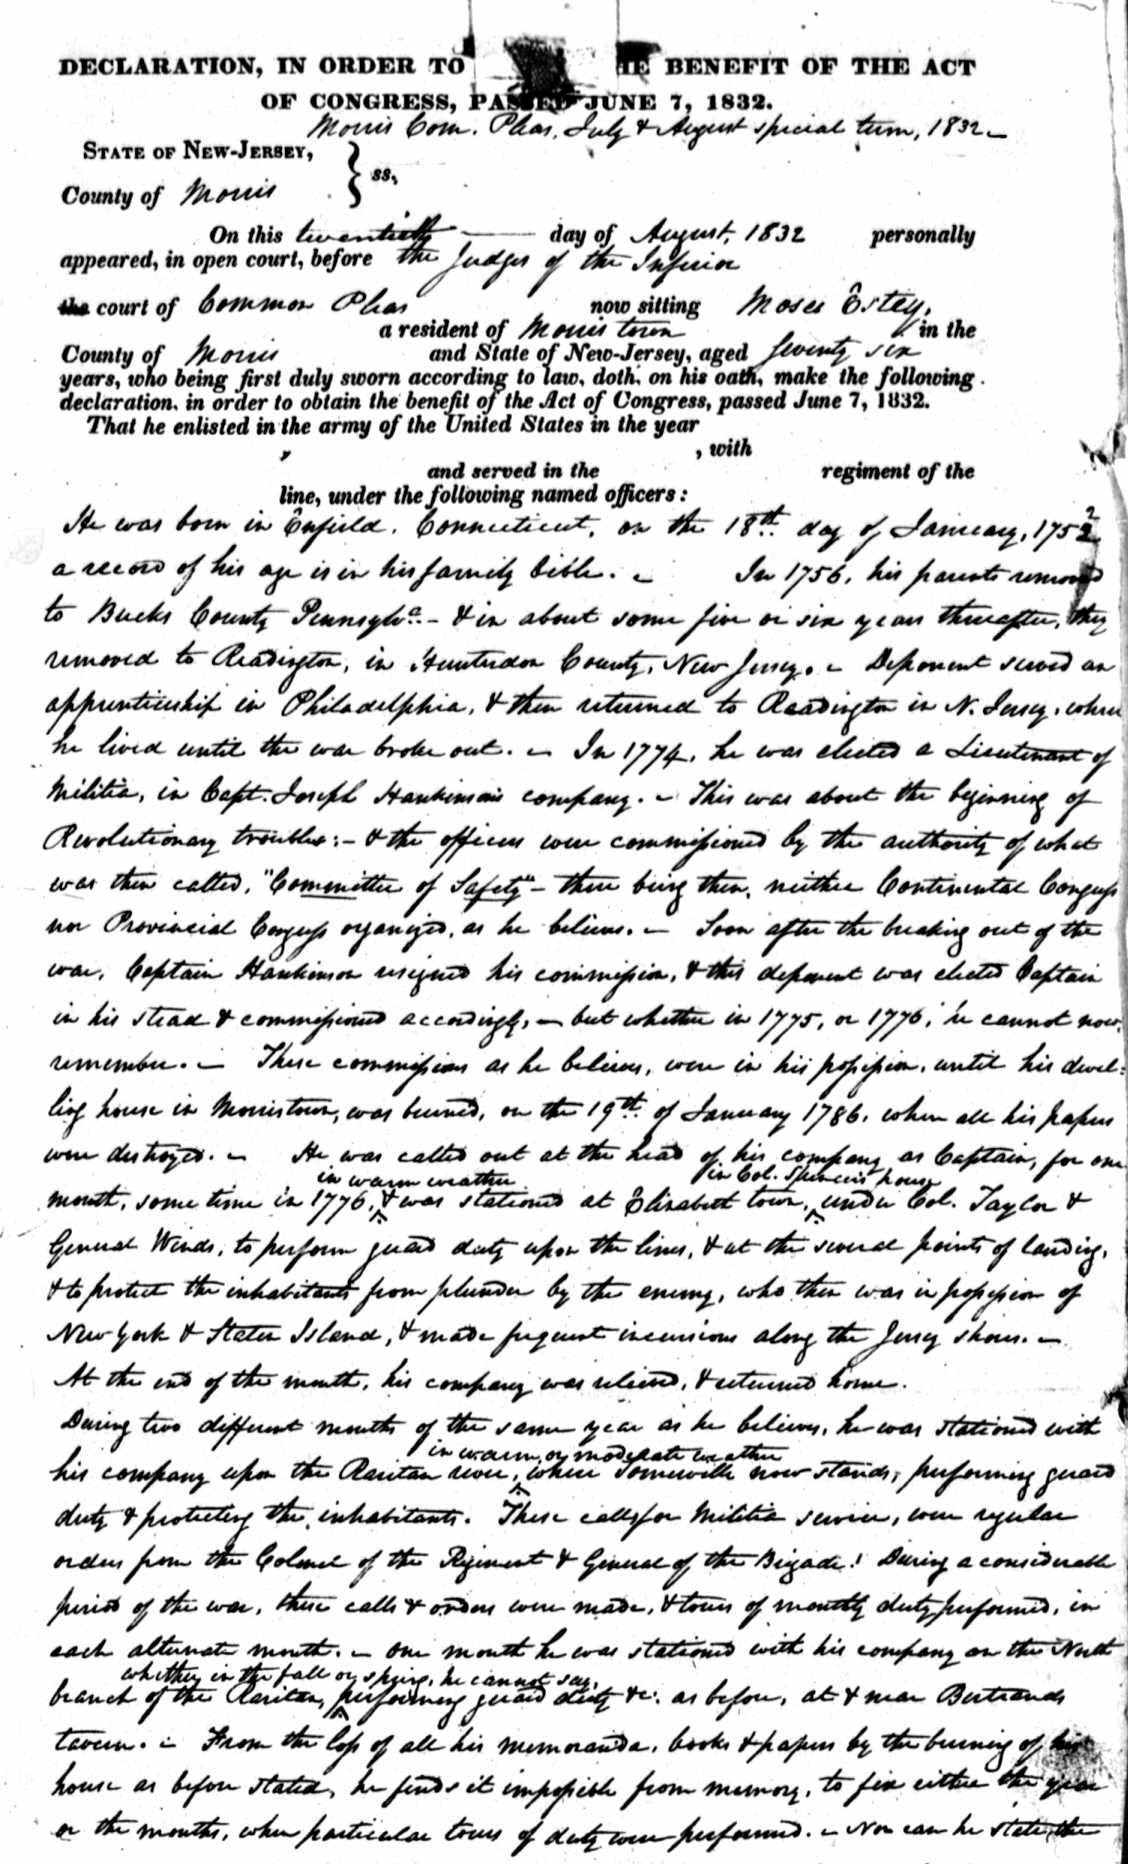 DECLARATION, IN ORDER TO HE BENEFIT OF THE ACT
OF CONGRESS, PASSED JUNE 7, 1832.
Morris Com. Pleas, July & August special term, 1832
STATE OF NEW-JERSEY, } ss.
County of Morris
On this twentieth day of August, 1832 personally
appeared, in open court, before the Judges of the Inferior
the court of Common Pleas now sitting Moses Estey,
a resident of Morristown in the
County of Morris and State of New-Jersey, aged seventy six
years, who being first duly sworn according to law, doth, on his oath, make the following
declaration, in order to obtain the benefit of the Act of Congress, passed June 7, 1832.
That he enlisted in the army of the United States in the year
, with
and served in the regiment of the
line, under the following named officers:
He was born in Enfield, Connecticut, on the 18th day of January, 1752
a record of his age is in his family bible. - In 1756, his parents removed
to Bucks County Pennsylva. - & in about some five or six years thereafter, they
removed to Readington, in Hunterdon County, New Jersey. - Deponent served an
apprenticeship in Philadelphia, & then returned to Readington in N. Jersey, where
he lived until the war broke out. - In 1774, he was elected a Lieutenant of
Militia, in Capt. Joseph Hankinson's company. - This was about the beginning of
Revolutionary troubles: - & the officers were commissioned by the authority of what
was then called, "Committee of Safety" - there being then, neither Continental Congress
nor Provincial Congress organized, as he believes. - Soon after the breaking out of the
war, Captain Hankinson resigned his commission, & this deponent was elected Captain
in his stead & commissioned accordingly, - but whether in 1775, or 1776, he cannot now
remember. - These commissions as he believes, were in his possession, until his dwel=
ling house in Morristown, was burned, on the 19th of January 1786, when all his papers
were destroyed. - He was called out at the head of his company as Captain, for one
in warm weather in Col. Spencer's house
month, some time in 1776, & was stationed at Elizabeth town, under Col. Taylor &
General Winds, to perform guard duty upon the lines, & at the several points of landing,
& to protect the inhabitants from plunder by the enemy, who then was in possession of
New York & Staten Island, & made frequent incursions along the Jersey shores. -
At the end of the month, his company was relieved, & returned home.
During two different months of the same year as he believes, he was stationed with
in warm or moderate weather
his company upon the Raritan river, where Somerville now stands, performing guard
duty & protecting the inhabitants. These calls for Militia service, were regular
orders from the Colonel of the Regiment & General of the Brigade. During a considerable
period of the war, these calls & orders were made, & tours of monthly duty performed, in
each alternate month. - One month he was stationed with his company on the North
whether in the fall or spring, he cannot say,
branch of the Raritan, performing guard duty &c. as before, at & near Bertrands
tavern. - From the loss of all his memoranda, books & papers by the burning of his
house as before stated, he finds it impossible from memory, to fix either the year
or the months, when particular tours of duty were performed. - Nor can he state the